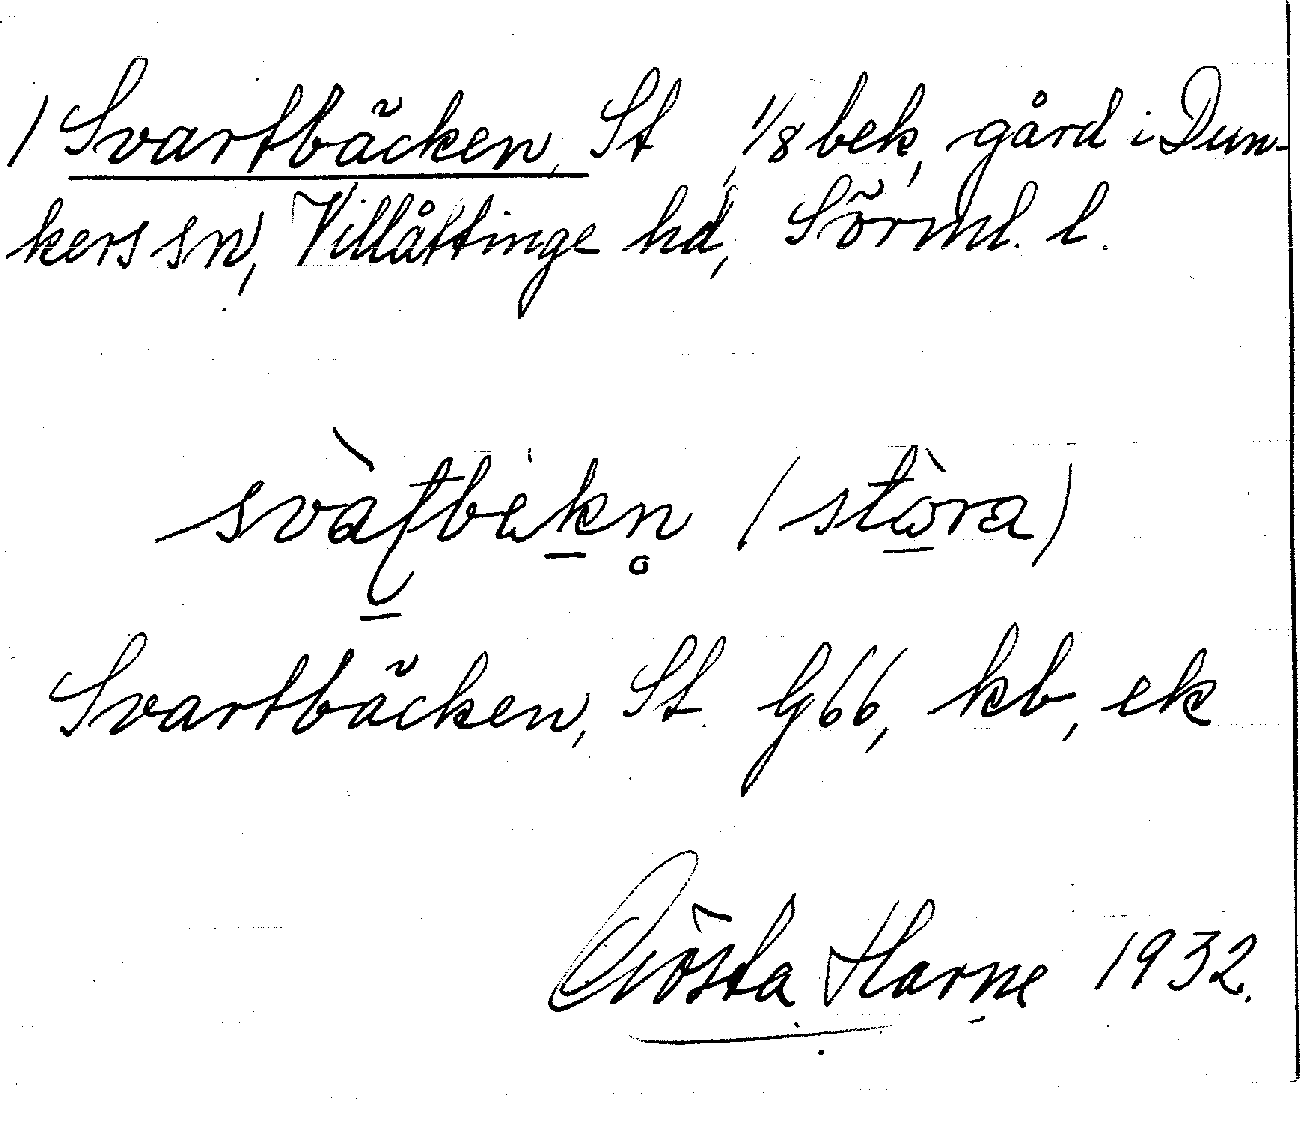 1 Svartbäcken, St, 1/8 bek, gård i Dun-
kers sn, Villåttinge hd, Sörml. l.
(stòra)
Svartbäcken, St. G66, kb, ek
Gösta Harne 1932.